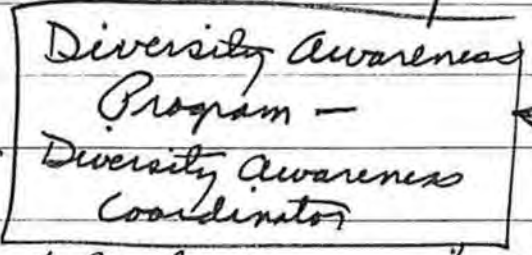 Diversity Awareness
Program —
Diversity Awareness
Coordinator